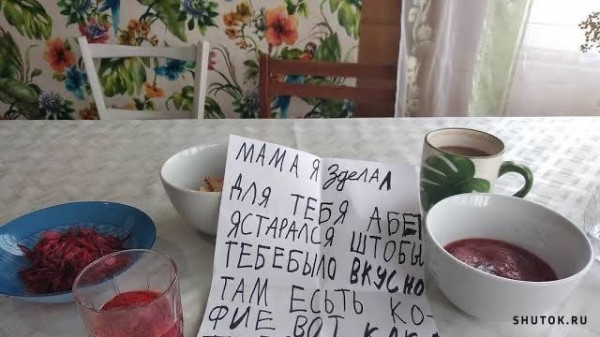 МАМА Я ЗДЕЛАЛ
ДЛЯ ТЕБЯ АБЕТ
ЯСТАРАЛСЯ ШТОБЫ
ТЕБЕБЫЛО ВКУСНО
ТАМ ЕСЬТЬ КО-
ФИЕ ВОТ
SHUTOK.RU